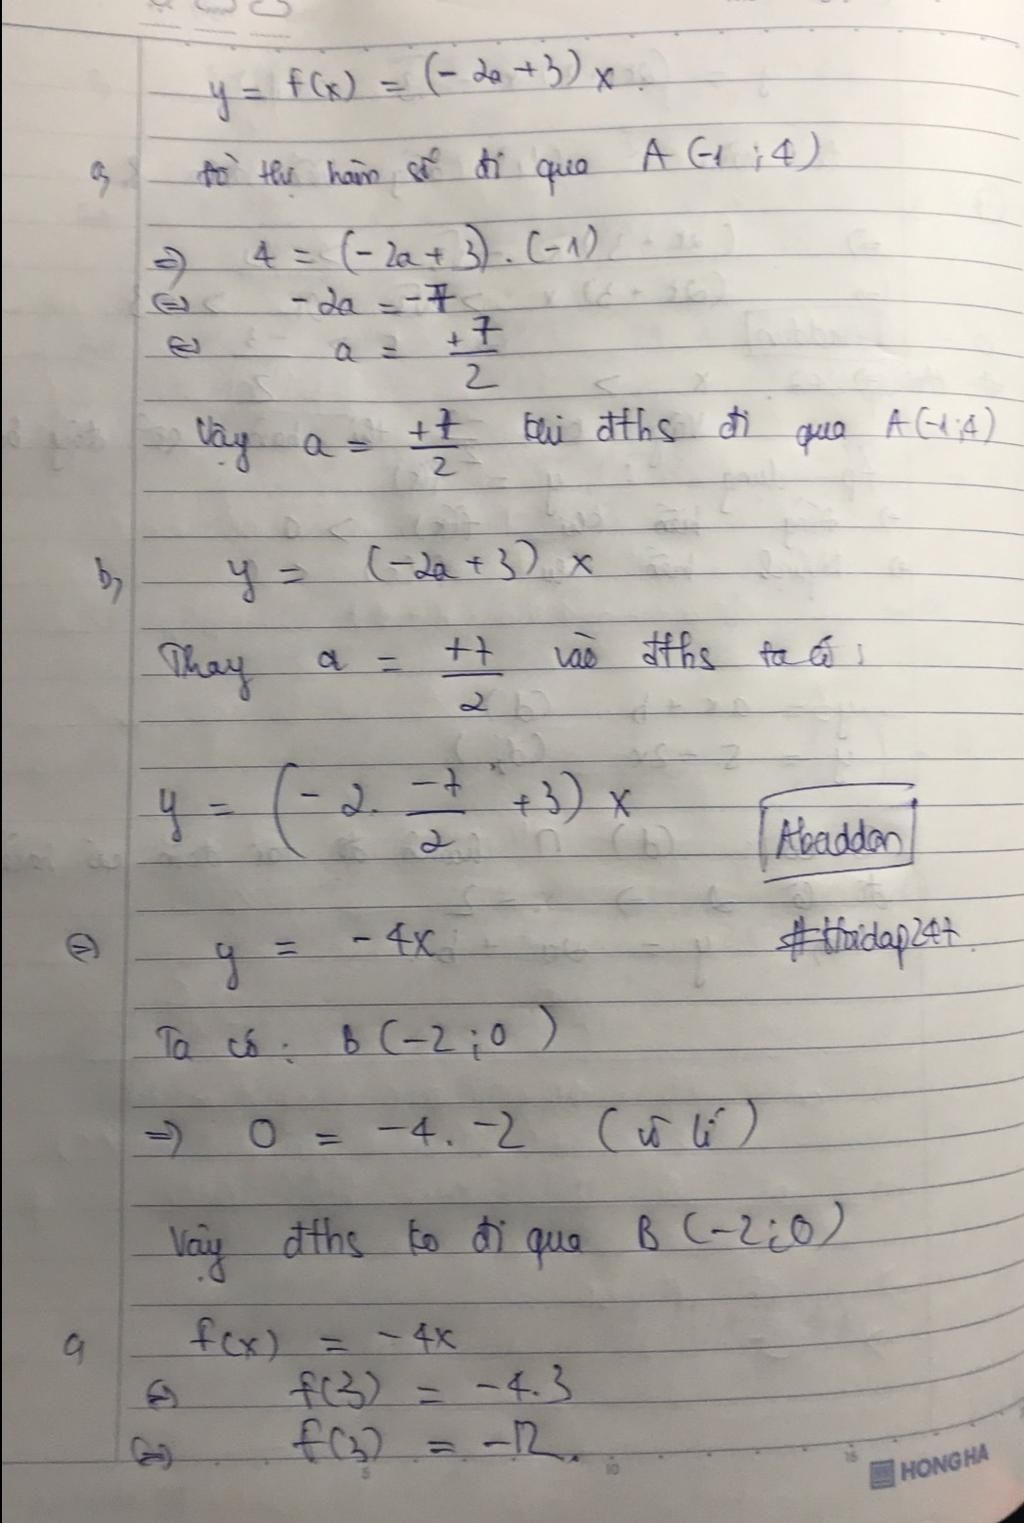 y = f(x) = (-2a+3)x.
a, Đồ thị hàm số đi qua A(-1;4)
=> 4 = (-2a+3).(-1)
<=> -2a = -7
<=> a = +7/2
Vậy a = +7/2 khi đths đi qua A(-1;4)
b, y = (-2a+3)x
Thay a = +7/2 vào đths ta có:
y = (-2. -7/2 +3)x
Abaddon
<=> y = -4x
#hoidap247
Ta có: B(-2;0)
=> 0 = -4.-2 (vô lí)
Vậy đths ko đi qua B(-2;0)
c, f(x) = -4x
<=> f(3) = -4.3
<=> f(3) = -12.
5 10 15
HONG HA